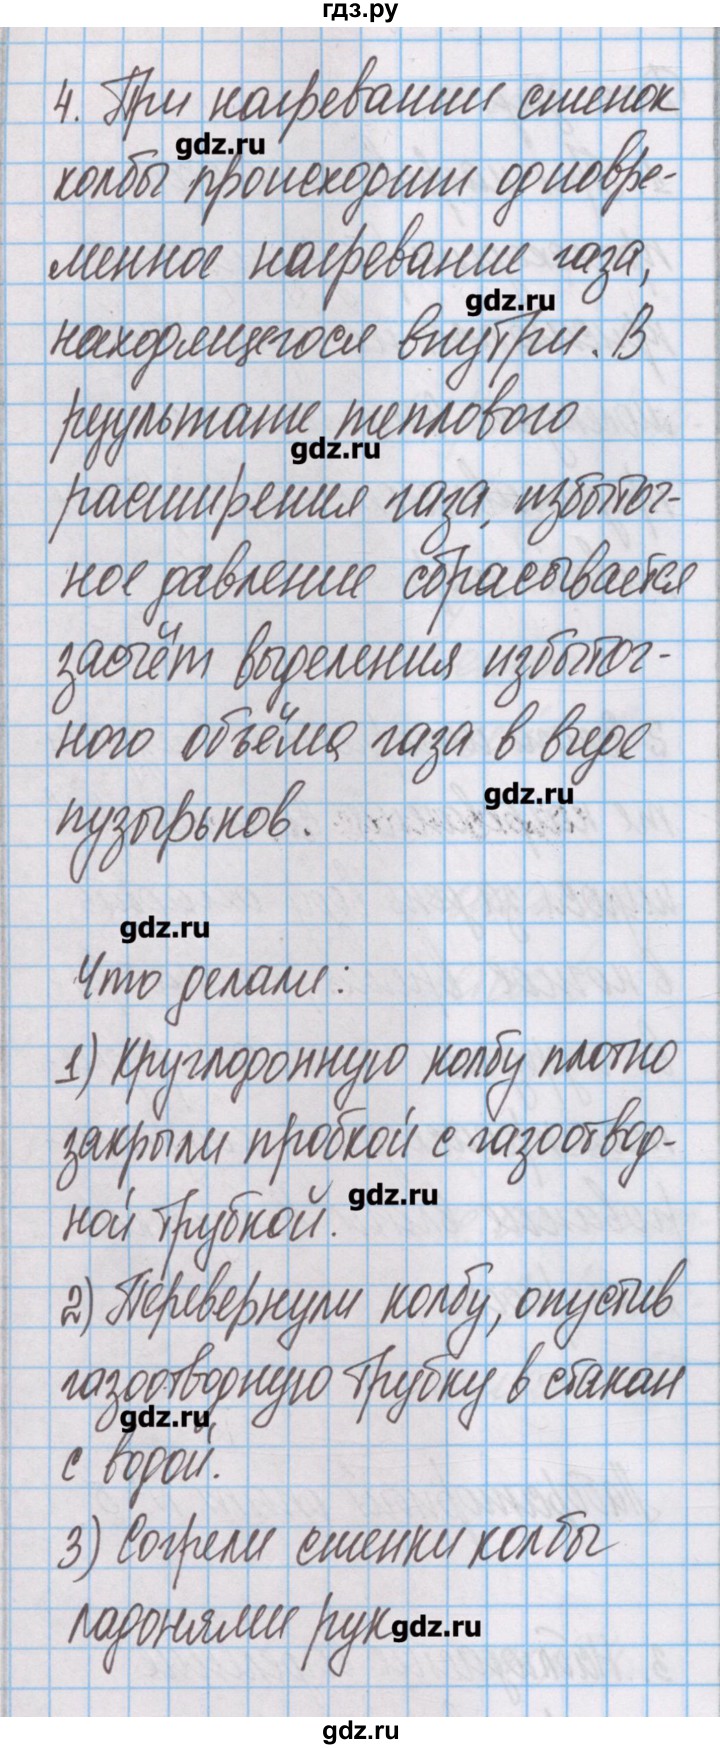 гдз.ру
4. При нагревании стенок
gdz.ru
колбы происходит одновре-
менное нагревание газа,
gdz.ru
находящегося внутри. В
результате теплового
gdz.ru
расширения газа, избыточ-
ное давление сбрасывается
засчёт выделения избыточ-
ного объёма газа в виде
gdz.ru
пузырьков.
gdz.ru
Что делали:
1) Круглодонную колбу плотно
закрыли пробкой с газоотвод-
gdz.ru
ной трубкой.
2) Перевернули колбу, опустив
газоотводную трубку в стакан
gdz.ru
с водой.
3) Согрели стенки колбы
ладонями рук
gdz.ru
gdz.ru